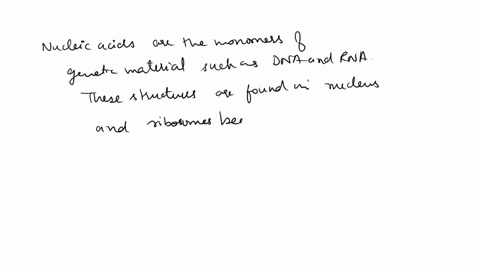 Nucleic acids are the monomers of
genetic material such as DNA and RNA.
These structures are found in nucleus
and ribosomes bec